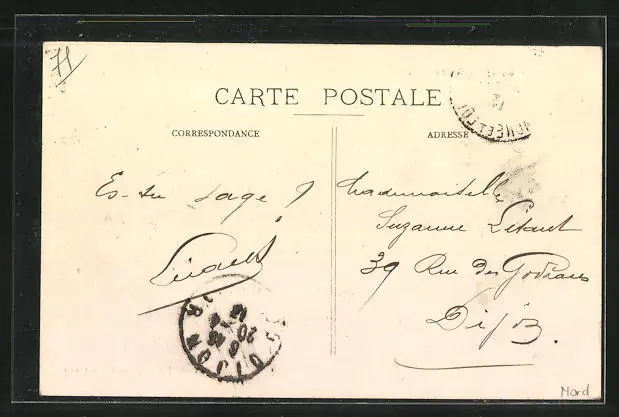 71
CARTE POSTALE
CORRESPONDANCE
ADRESSE
Es-tu sage ?
Mademoiselle
Suzanne
39 Rue des Godrans
Dijon.
DIJON
Nord